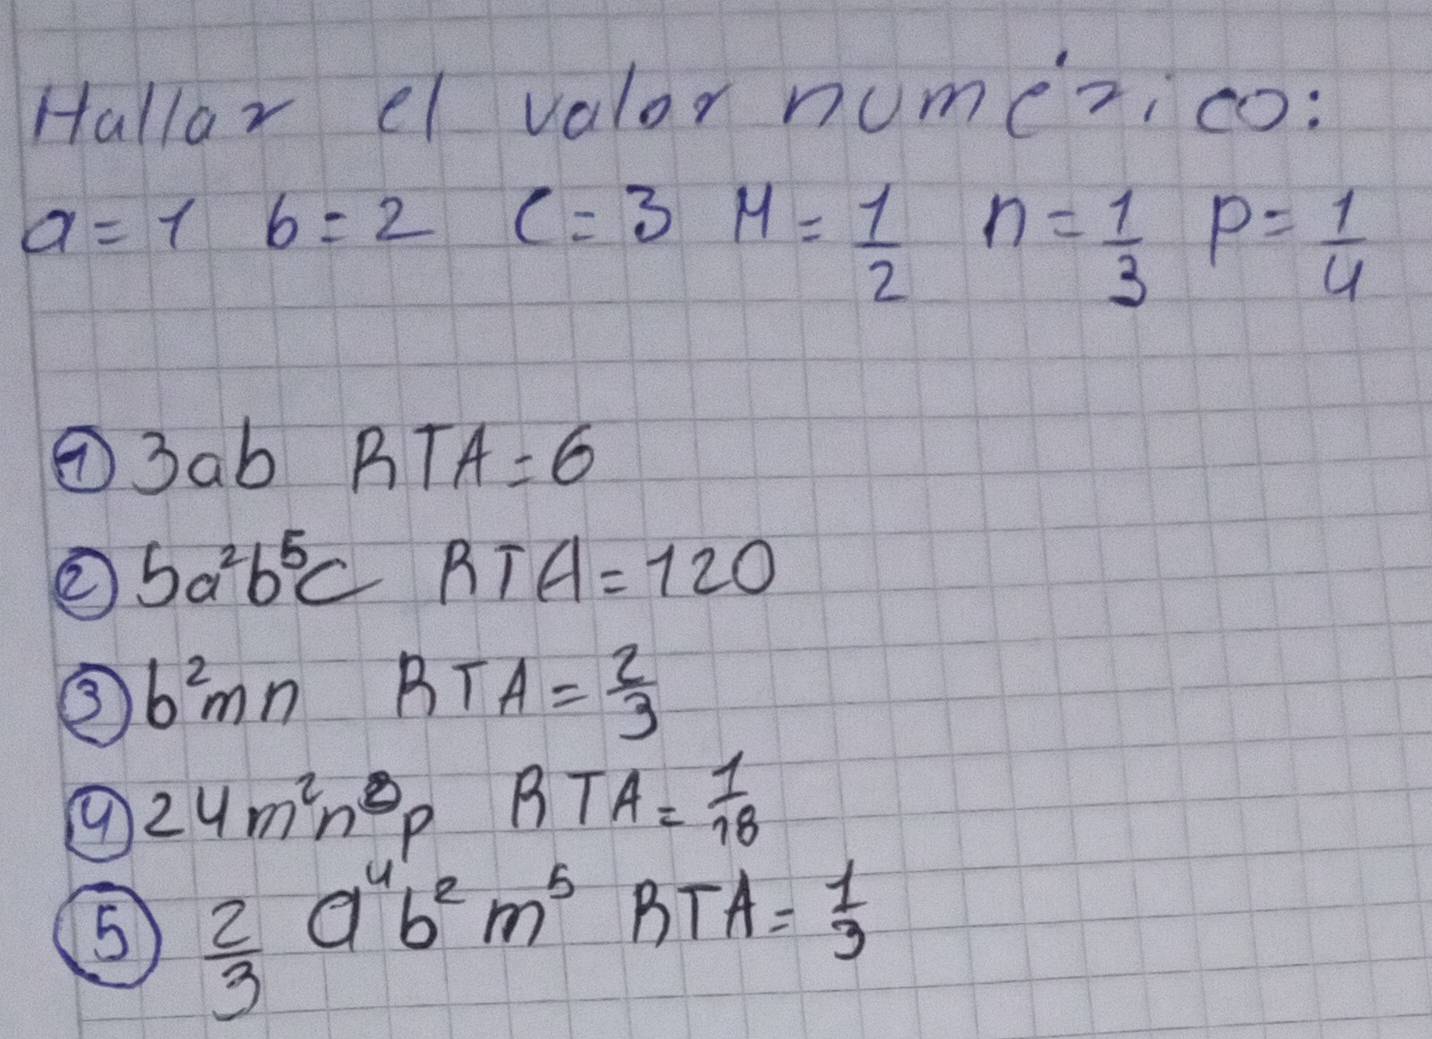 Hallar el valor numérico:
a=1 b=2 c=3 M=1/2 n=1/3 p=1/4
① 3ab RTA=6
② 5a²b⁵c RTA=120
③ b²mn RTA=2/3
④ 24m²n²p RTA=1/18
⑤ 2/3 a⁴b²m⁵ RTA=1/3